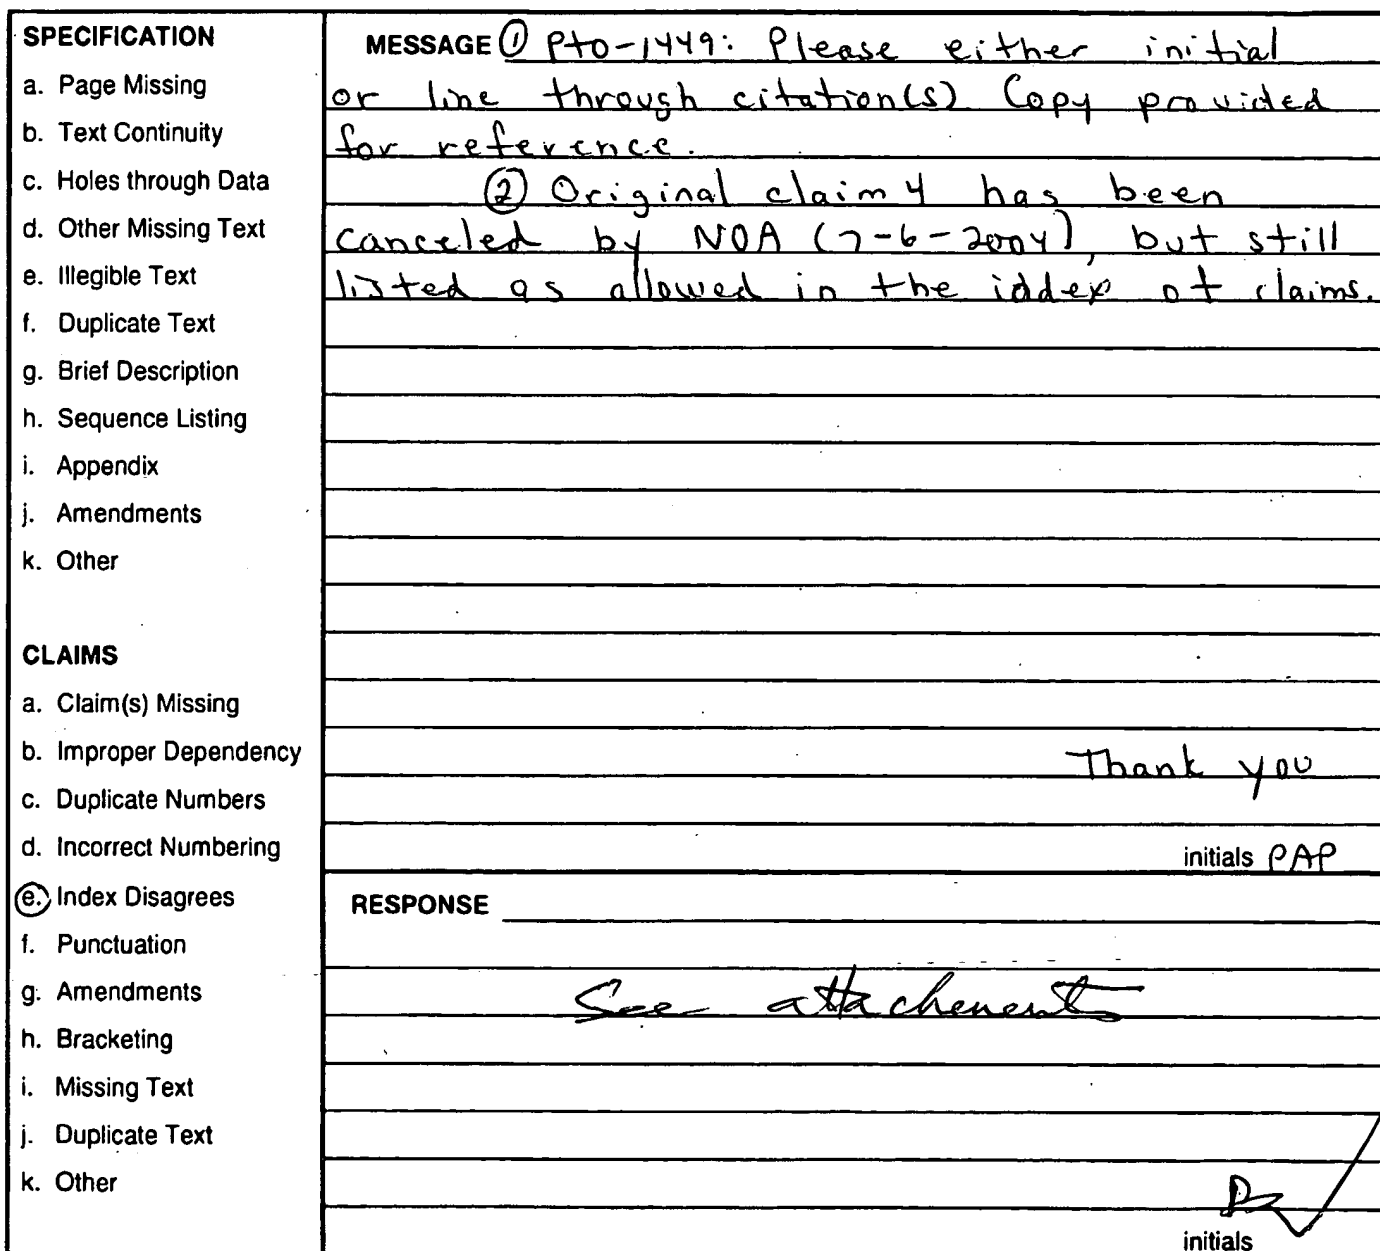 SPECIFICATION
a. Page Missing
b. Text Continuity
c. Holes through Data
d. Other Missing Text
e. Illegible Text
f. Duplicate Text
g. Brief Description
h. Sequence Listing
i. Appendix
j. Amendments
k. Other
CLAIMS
a. Claim(s) Missing
b. Improper Dependency
c. Duplicate Numbers
d. Incorrect Numbering
e. Index Disagrees
f. Punctuation
g. Amendments
h. Bracketing
i. Missing Text
j. Duplicate Text
k. Other
MESSAGE ① PTO-1449: Please either initial
or line through citation(s) Copy provided
for reference.
② Original claim 4 has been
canceled by NOA (7-6-2004), but still
listed as allowed in the iddex of claims.
Thank you
initials PAP
RESPONSE
See attachement
initials